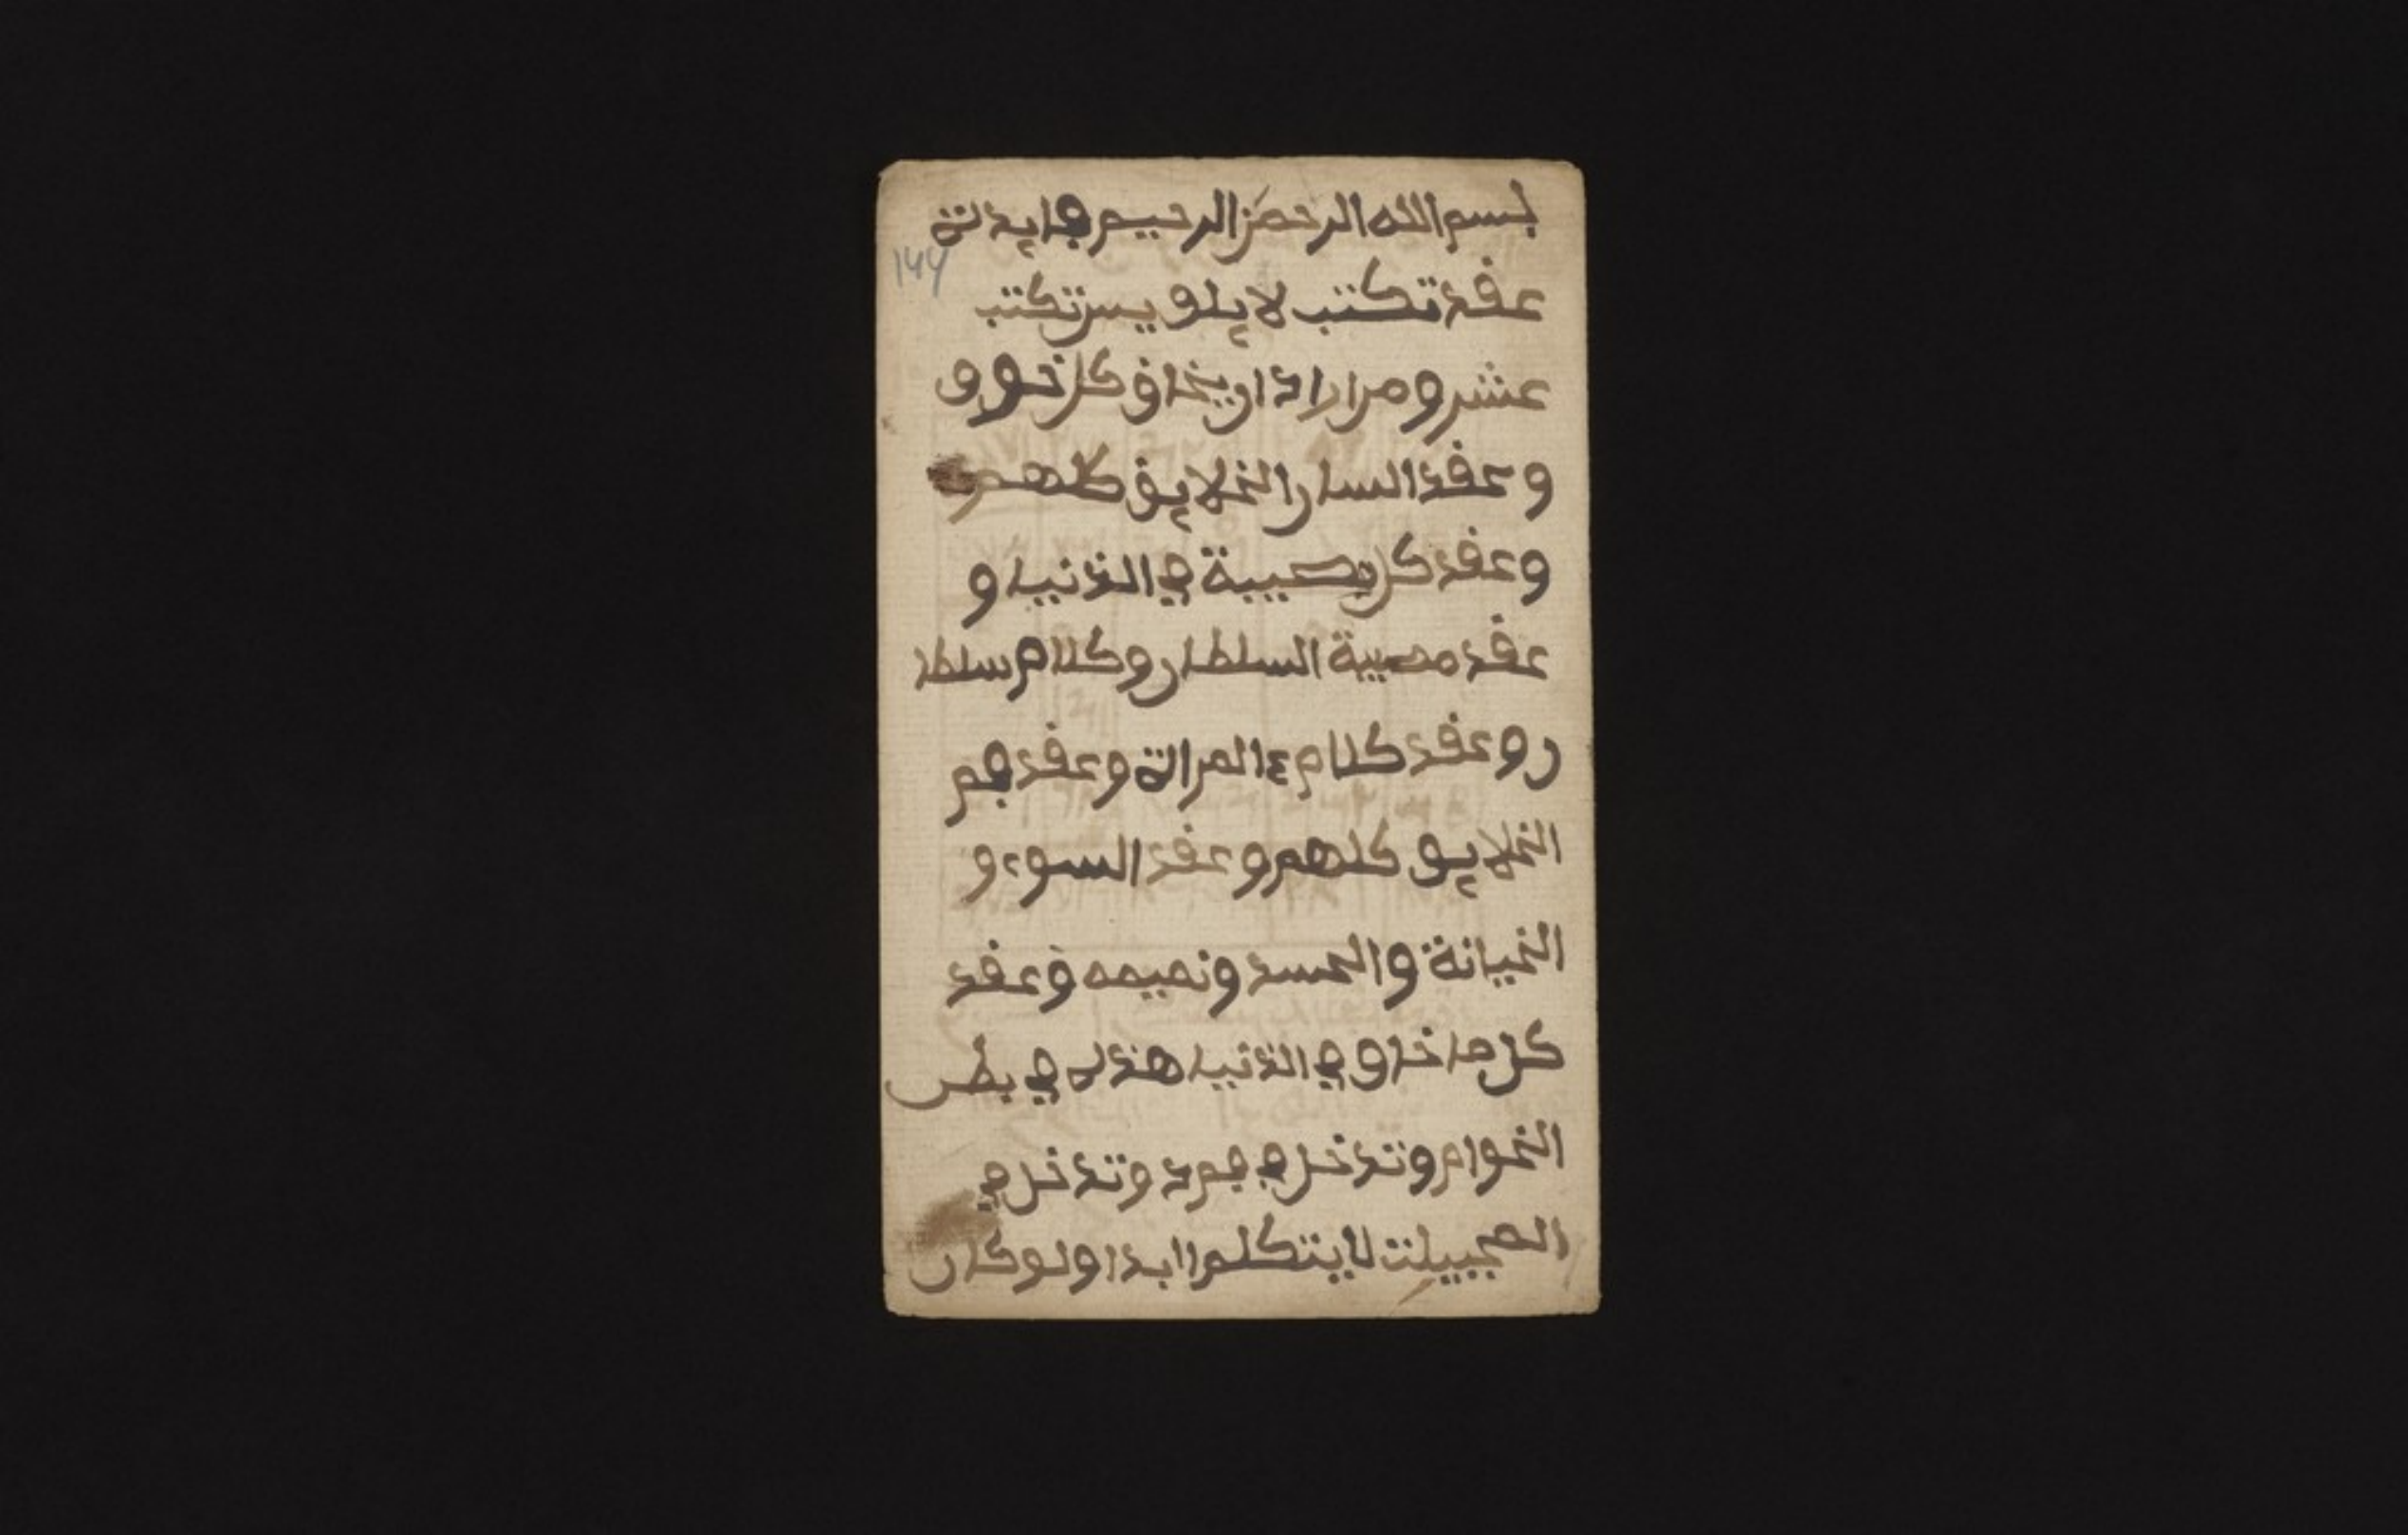 بسم الله الرحمن الرحيم فايدة
١٤٤
عفد تكتب لايلو يس تكتب
عشر و مرار اد او يخاف كل خوو
و عفد السار الخلايق كلهم
وعفد كل مصيبة في الدنيا و
عفد مصيبة السلطار وكلام سلطا
ر و عفد كلام المراة وعفد فم
الخلايو كلهم وعفد السوء و
الخيانة والحسد ونميمه وعفد
كل ما خلو في الدنيا هذه في بطن
الخوام وتدخل في فمد وتدخل في
لايتكلموا ابدا ولوكان